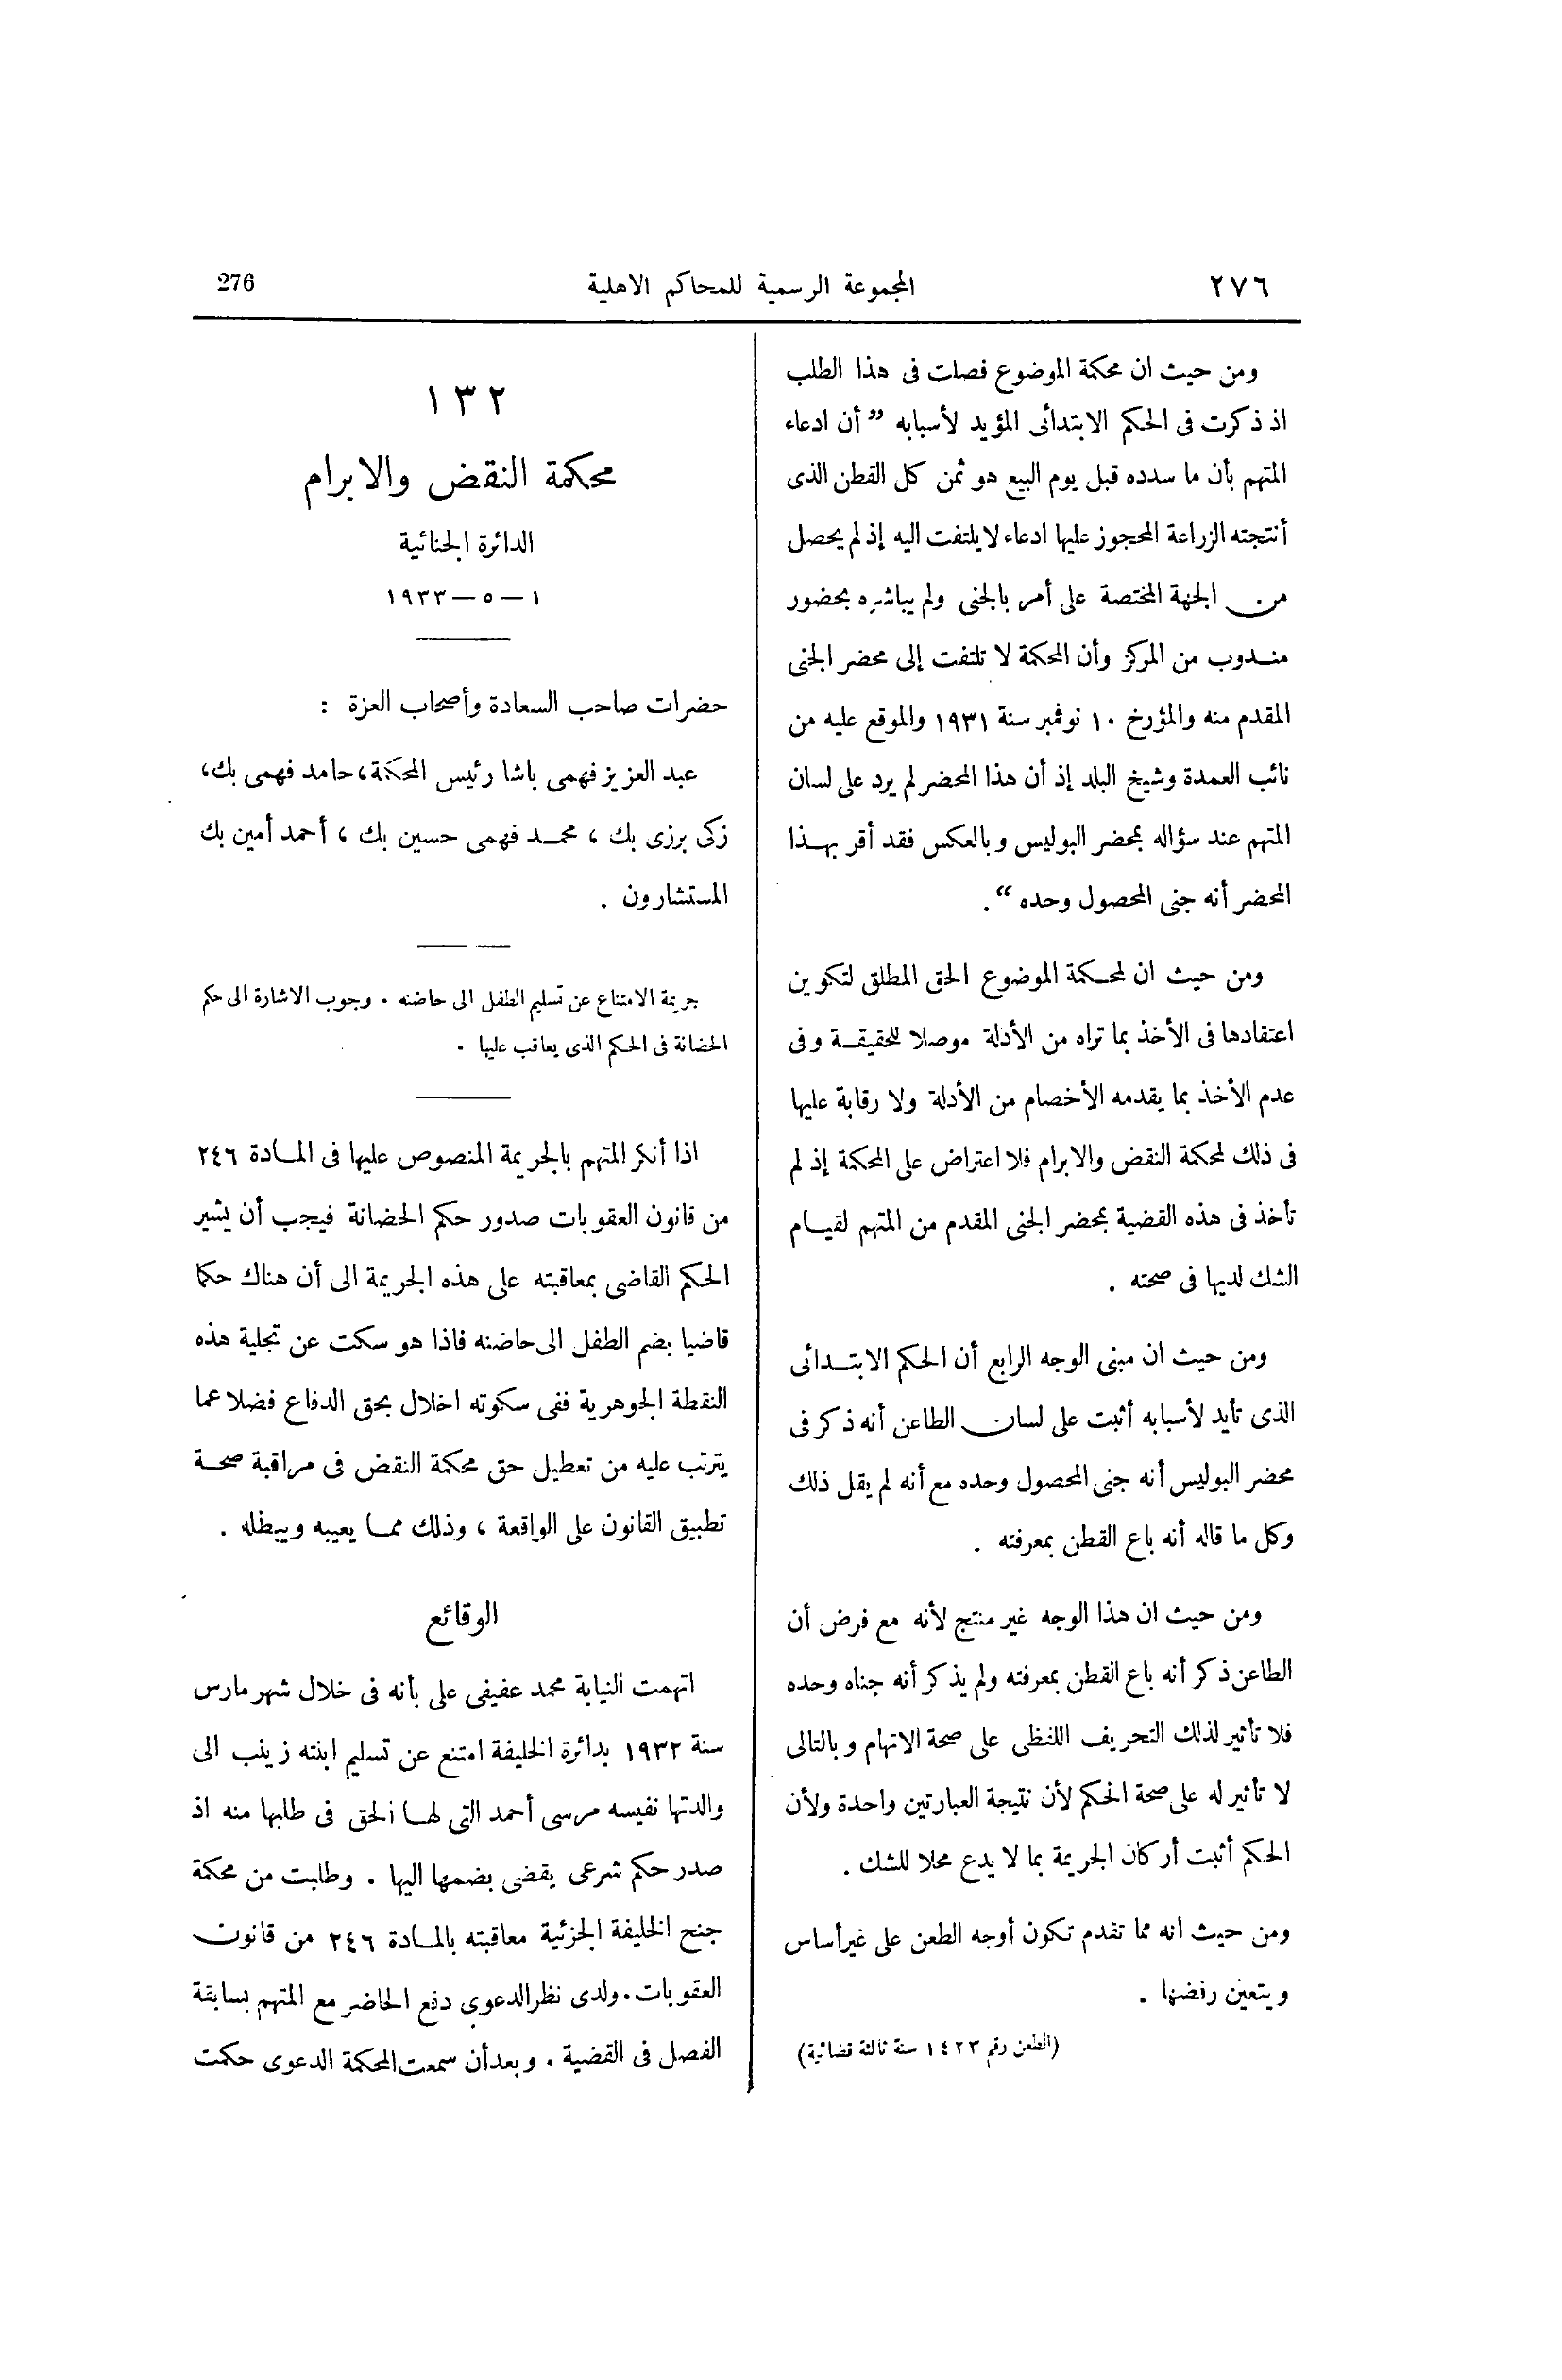 ٢٧٦
المجموعة الرسمية للمحاكم الاهلية
276
ومن حيث ان محكمة الموضوع فصلت فى هذا الطلب
اذ ذكرت فى الحكم الابتدائى المؤيد لأسبابه ” أن ادعاء
المتهم بأن ما سدده قبل يوم البيع هو ثمن كل القطن الذى
أنتجته الزراعة المحجوز عليها ادعاء لا يلتفت اليه إذ لم يحصل
من الجهة المختصة على أمر بالجنى ولم يباشره بحضور
مندوب من المركز وأن المحكمة لا تلتفت إلى محضر الجنى
المقدم منه والمؤرخ ١٠ نوفمبر سنة ١٩٣١ والموقع عليه من
نائب العمدة وشيخ البلد إذ أن هذا المحضر لم يرد على لسان
المتهم عند سؤاله بمحضر البوليس وبالعكس فقد أقر بهذا
المحضر أنه جنى المحصول وحده “ .
ومن حيث ان لمحكمة الموضوع الحق المطلق لتكوين
اعتقادها فى الأخذ بما تراه من الأدلة موصلا للحقيقة وفى
عدم الأخذ بما يقدمه الأخصام من الأدلة ولا رقابة عليها
فى ذلك لمحكمة النقض والابرام فلا اعتراض على المحكمة إذ لم
تأخذ فى هذه القضية بمحضر الجنى المقدم من المتهم لقيام
الشك لديها فى صحته .
ومن حيث ان مبنى الوجه الرابع أن الحكم الابتدائى
الذى تأيد لأسبابه أثبت على لسان الطاعن أنه ذكر فى
محضر البوليس أنه جنى المحصول وحده مع أنه لم يقل ذلك
وكل ما قاله أنه باع القطن بمعرفته .
ومن حيث ان هذا الوجه غير منتج لأنه مع فرض أن
الطاعن ذكر أنه باع القطن بمعرفته ولم يذكر أنه جناه وحده
فلا تأثير لذلك التحريف اللفظى على صحة الاتهام وبالتالى
لا تأثير له على صحة الحكم لأن نتيجة العبارتين واحدة ولأن
الحكم أثبت أركان الجريمة بما لا يدع محلا للشك .
ومن حيث انه مما تقدم تكون أوجه الطعن على غير أساس
ويتعين رفضها .
(الطعن رقم ١٤٢٣ سنة ثالثة قضائية)
١٣٢
محكمة النقض والابرام
الدائرة الجنائية
١ — ٥ — ١٩٣٣
حضرات صاحب السعادة وأصحاب العزة :
عبد العزيز فهمى باشا رئيس المحكمة، حامد فهمى بك،
زكى برزى بك ، محمد فهمى حسين بك ، أحمد أمين بك
المستشارون .
جريمة الامتناع عن تسليم الطفل الى حاضنه . وجوب الاشارة الى حكم
الحضانة فى الحكم الذى يعاقب عليها .
اذا أنكر المتهم بالجريمة المنصوص عليها فى المادة ٢٤٦
من قانون العقوبات صدور حكم الحضانة فيجب أن يشير
الحكم القاضى بمعاقبته على هذه الجريمة الى أن هناك حكما
قاضيا بضم الطفل الى حاضنه فاذا هو سكت عن تجلية هذه
النقطة الجوهرية ففى سكوته اخلال بحق الدفاع فضلا عما
يترتب عليه من تعطيل حق محكمة النقض فى مراقبة صحة
تطبيق القانون على الواقعة ، وذلك مما يعيبه ويبطله .
الوقائع
اتهمت النيابة محمد عفيفى على بأنه فى خلال شهر مارس
سنة ١٩٣٢ بدائرة الخليفة امتنع عن تسليم ابنته زينب الى
والدتها نفيسه مرسى أحمد التى لها الحق فى طلبها منه اذ
صدر حكم شرعى يقضى بضمها اليها . وطلبت من محكمة
جنح الخليفة الجزئية معاقبته بالمادة ٢٤٦ من قانون
العقوبات . ولدى نظر الدعوى دفع الحاضر مع المتهم بسابقة
الفصل فى القضية . وبعد أن سمعت المحكمة الدعوى حكمت